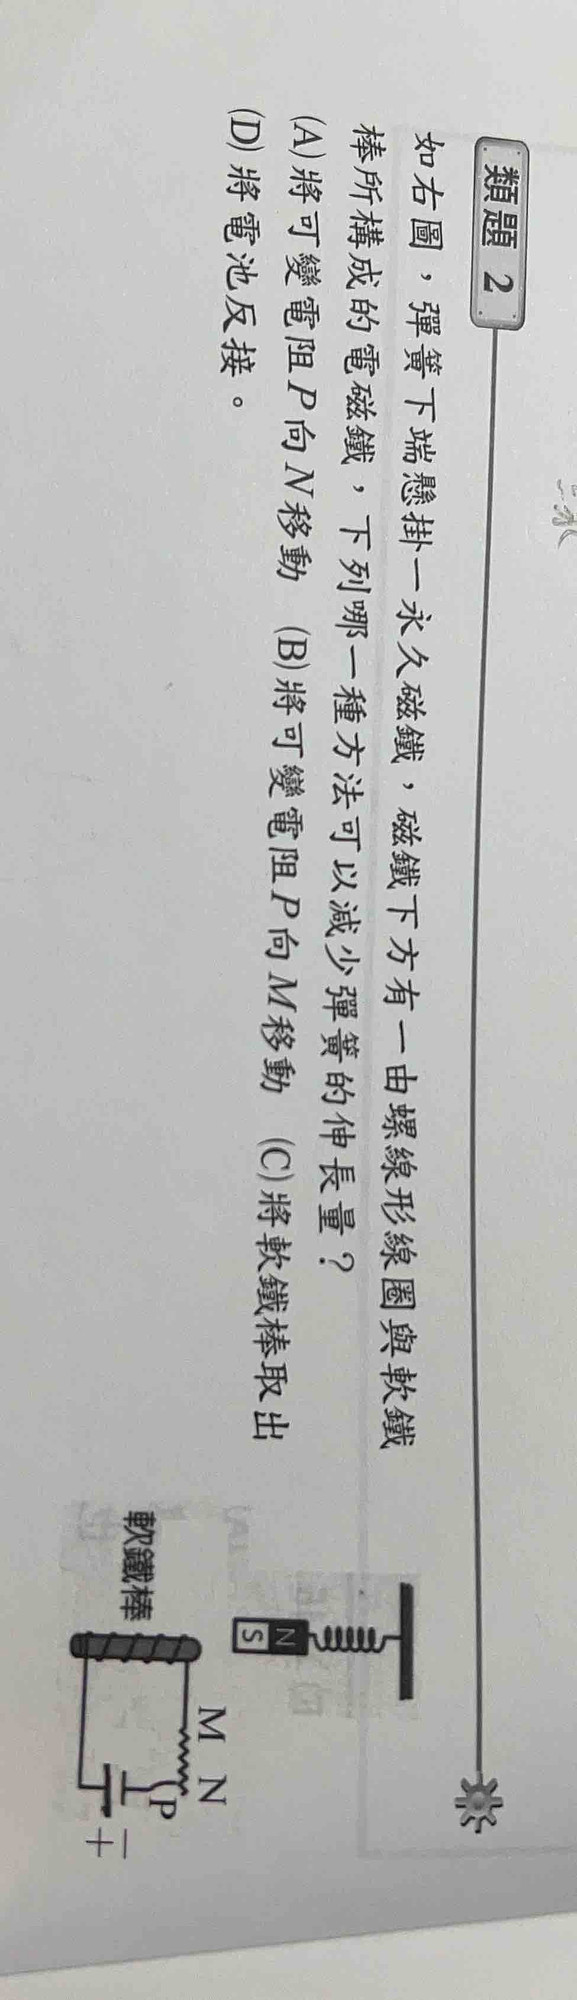 類題 2
如右圖，彈簧下端懸掛一永久磁鐵，磁鐵下方有一由螺線形線圈與軟鐵
棒所構成的電磁鐵，下列哪一種方法可以減少彈簧的伸長量？
(A)將可變電阻P向N移動　(B)將可變電阻P向M移動　(C)將軟鐵棒取出
(D)將電池反接。
N
S
M N
P
軟鐵棒
−
+